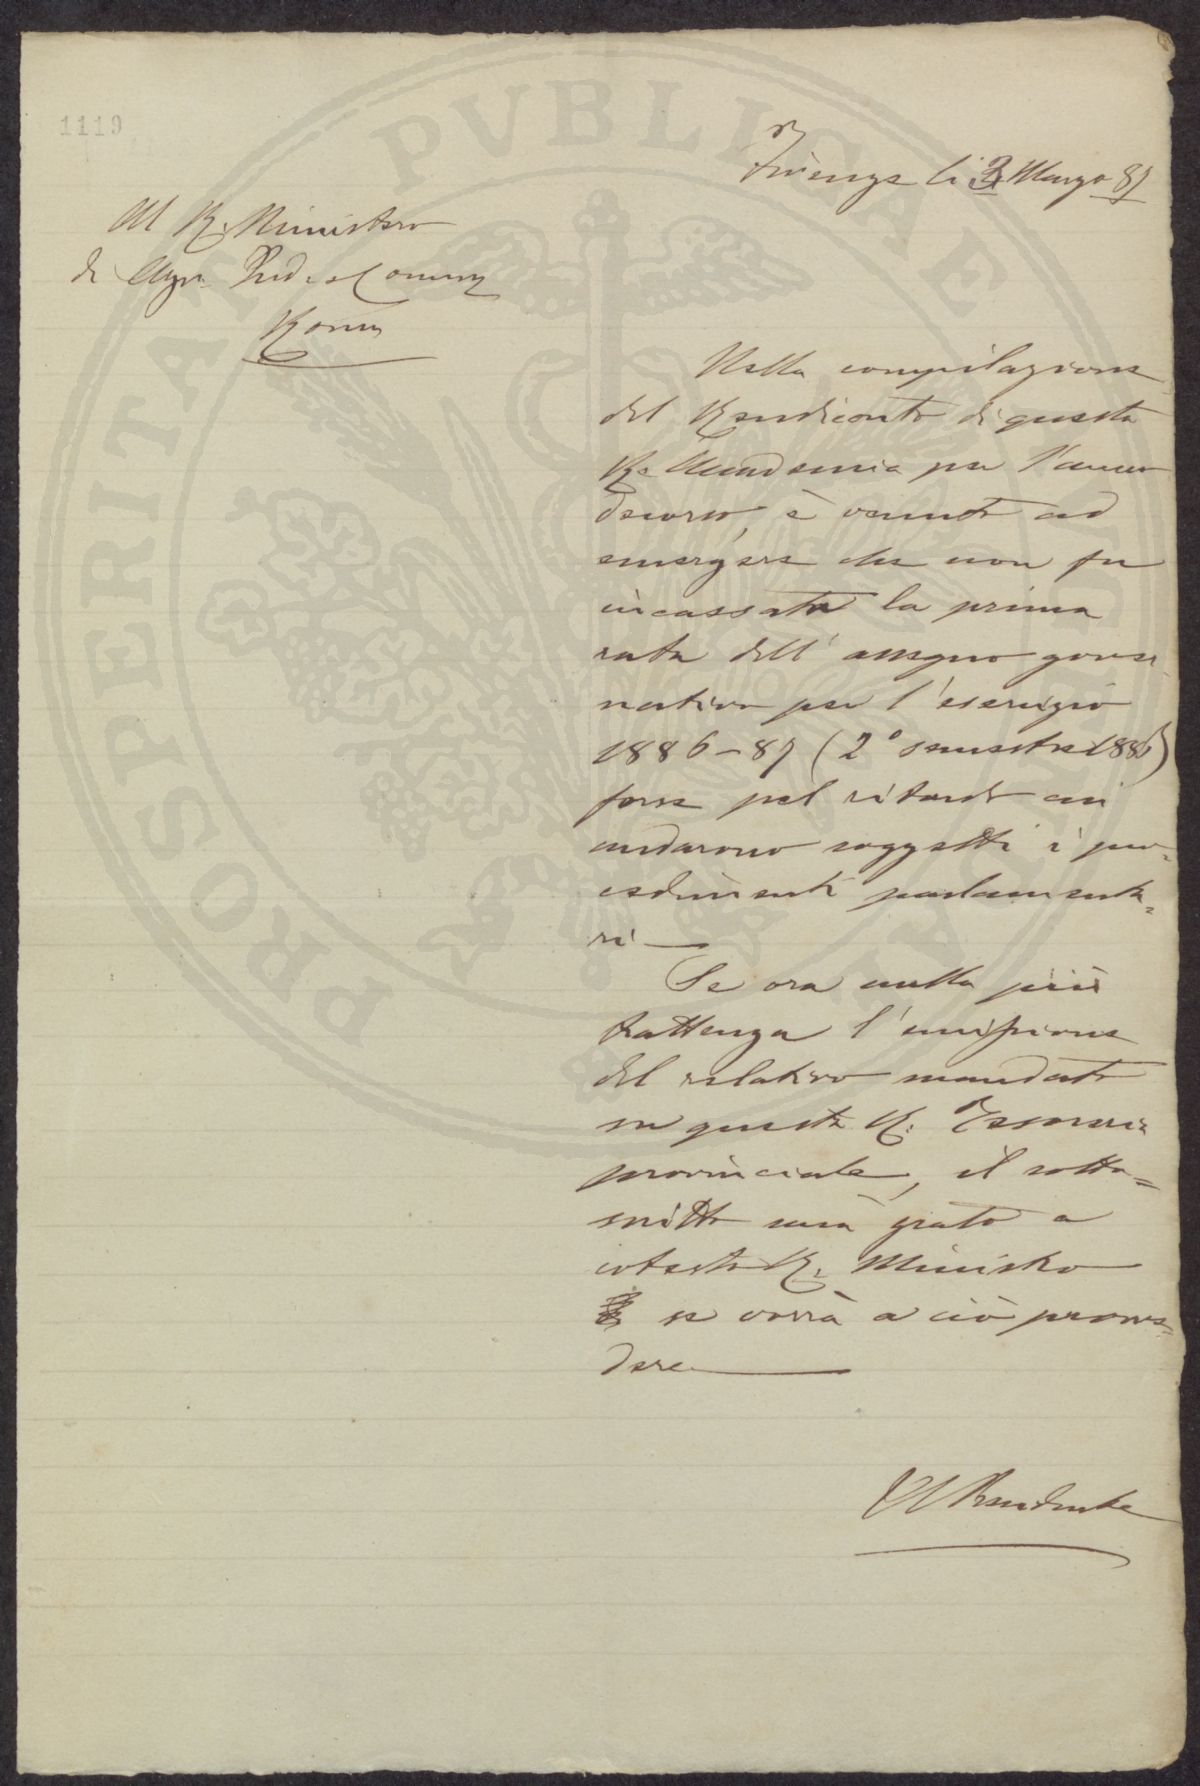 1119
Firenze li 3 Marzo 87
Al R. Ministero
di Agr. Ind. e Comm
Roma
Nella compilazione
del Rendiconto di questa
R. Accademia per l'anno
decorso, è venuto ad
emergere che non fu
incassata la prima
rata dell' assegno gover
nativo per l'esercizio
1886-87 (2° semestre 1886)
forse pel ritardo cui
andarono soggetti i prov=
edimenti parlamenta=
ri —
Se ora nulla più
trattenga l'emissione
del relativo mandato
su questa R. Tesoreria
provinciale, il sotto=
scritto sarà grato a
cotesto R. Ministro
se vorrà a ciò provve=
dere
Il Presidente
PROSPERITATI PVBLICAE